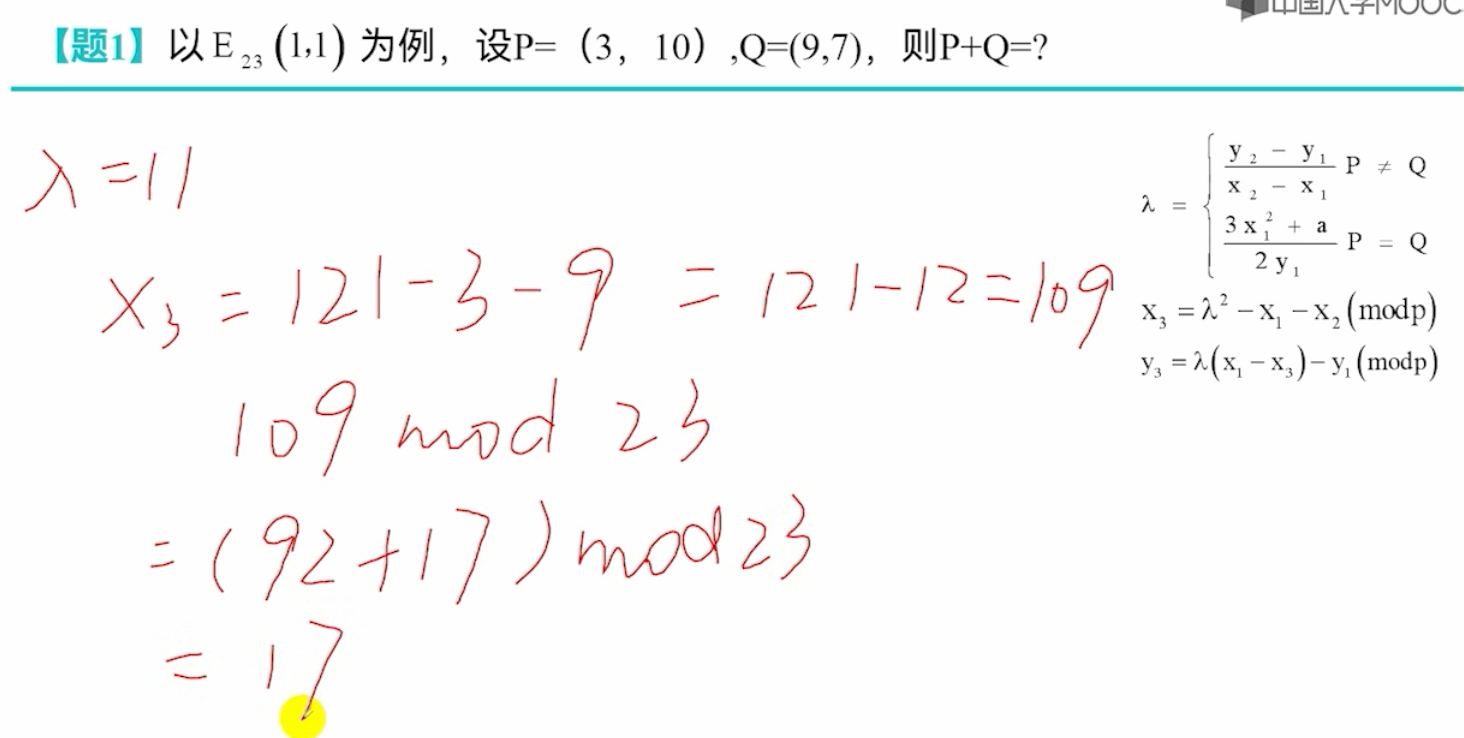 中国大学MOOC
【题1】以 E₂₃(1,1) 为例，设P=（3，10）,Q=(9,7)，则P+Q=?
λ=11
x₃=121-3-9=121-12=109
109 mod 23
=(92+17)mod23
=17
λ = { (y₂ - y₁)/(x₂ - x₁) P ≠ Q
(3x₁² + a)/(2y₁) P = Q
x₃=λ²-x₁-x₂(modp)
y₃=λ(x₁-x₃)-y₁(modp)